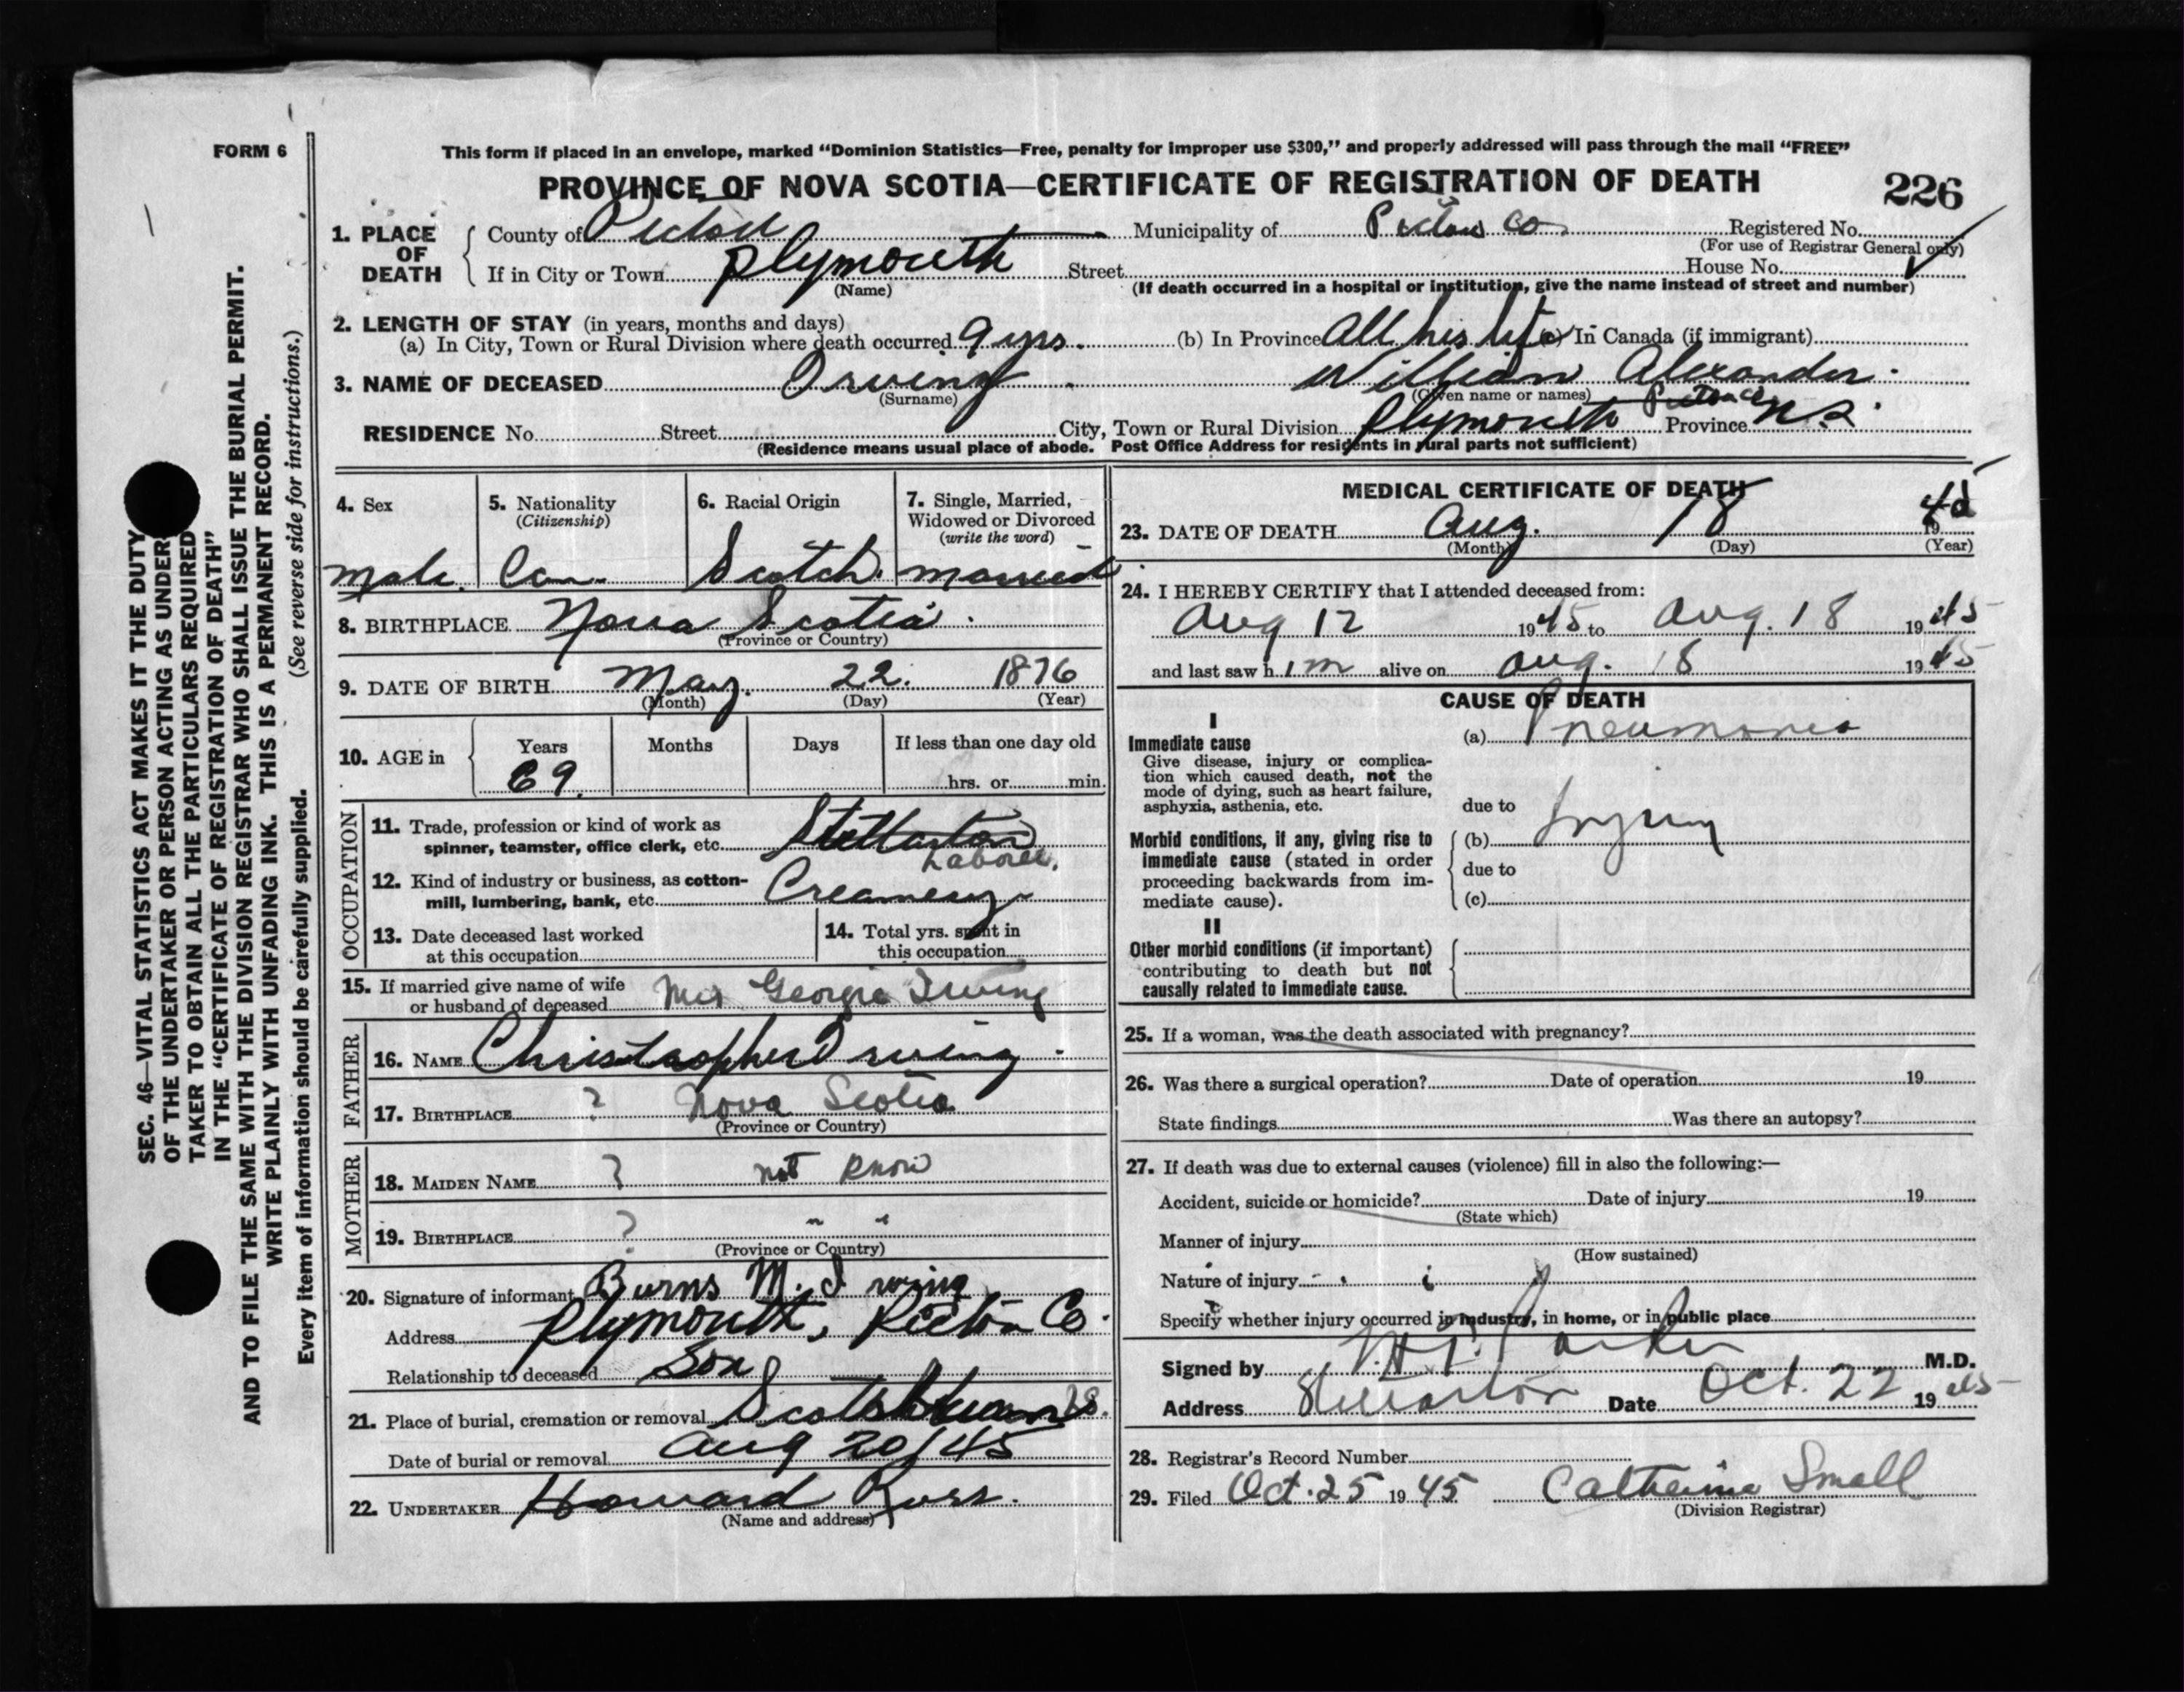 FORM 6
This form if placed in an envelope, marked “Dominion Statistics—Free, penalty for improper use $300,” and properly addressed will pass through the mail “FREE”
PROVINCE OF NOVA SCOTIA—CERTIFICATE OF REGISTRATION OF DEATH
226
1. PLACE OF DEATH
County of Pictou Municipality of Pictou Co. Registered No.
(For use of Registrar General only)
If in City or Town Plymouth Street House No.
(Name) (If death occurred in a hospital or institution, give the name instead of street and number)
2. LENGTH OF STAY (in years, months and days)
(a) In City, Town or Rural Division where death occurred 9 yrs. (b) In Province All his life (c) In Canada (if immigrant)
3. NAME OF DECEASED Irving William Alexander
(Surname) (Given name or names)
RESIDENCE No. Street City, Town or Rural Division Plymouth Pictou Co Province N.S.
(Residence means usual place of abode. Post Office Address for residents in rural parts not sufficient)
4. Sex
male
5. Nationality
(Citizenship)
Can.
6. Racial Origin
Scotch
7. Single, Married,
Widowed or Divorced
(write the word)
married
8. BIRTHPLACE Nova Scotia
(Province or Country)
9. DATE OF BIRTH May 22 1876
(Month) (Day) (Year)
10. AGE in
Years Months Days If less than one day old
69 hrs. or min.
OCCUPATION
11. Trade, profession or kind of work as
spinner, teamster, office clerk, etc. Stellarton
Laborer.
12. Kind of industry or business, as cotton-
mill, lumbering, bank, etc. Creamery
13. Date deceased last worked
at this occupation
14. Total yrs. spent in
this occupation
15. If married give name of wife
or husband of deceased Mrs Georgie Irving
FATHER
16. NAME Christopher Irving
17. BIRTHPLACE ? Nova Scotia
(Province or Country)
MOTHER
18. MAIDEN NAME ? not know
19. BIRTHPLACE ? " "
(Province or Country)
20. Signature of informant Burns M. Irving
Address Plymouth, Pictou Co.
Relationship to deceased Son
21. Place of burial, cremation or removal Scotsburn
Date of burial or removal Aug 20/45
22. UNDERTAKER Howard Ross.
(Name and address)
MEDICAL CERTIFICATE OF DEATH
23. DATE OF DEATH Aug. 18 19
(Month) (Day) (Year)
24. I HEREBY CERTIFY that I attended deceased from:
Aug 12 1945 to Aug. 18 1945
and last saw him alive on Aug. 18 1945
CAUSE OF DEATH
I
Immediate cause
Give disease, injury or complica-
tion which caused death, not the
mode of dying, such as heart failure,
asphyxia, asthenia, etc.
(a) Pneumonia
due to
Morbid conditions, if any, giving rise to
immediate cause (stated in order
proceeding backwards from im-
mediate cause).
(b) Injury
due to
(c)
II
Other morbid conditions (if important)
contributing to death but not
causally related to immediate cause.
25. If a woman, was the death associated with pregnancy?
26. Was there a surgical operation? Date of operation 19
State findings Was there an autopsy?
27. If death was due to external causes (violence) fill in also the following:—
Accident, suicide or homicide? Date of injury 19
(State which)
Manner of injury
(How sustained)
Nature of injury
Specify whether injury occurred in industry, in home, or in public place
Signed by Parker M.D.
Address Stellarton Date Oct. 22 1945
28. Registrar's Record Number
29. Filed Oct. 25 1945 Catherine Small
(Division Registrar)
SEC. 46—VITAL STATISTICS ACT MAKES IT THE DUTY
OF THE UNDERTAKER OR PERSON ACTING AS UNDER
TAKER TO OBTAIN ALL THE PARTICULARS REQUIRED
IN THE “CERTIFICATE OF REGISTRATION OF DEATH”
AND TO FILE THE SAME WITH THE DIVISION REGISTRAR WHO SHALL ISSUE THE BURIAL PERMIT.
WRITE PLAINLY WITH UNFADING INK. THIS IS A PERMANENT RECORD.
Every item of information should be carefully supplied. (See reverse side for instructions.)